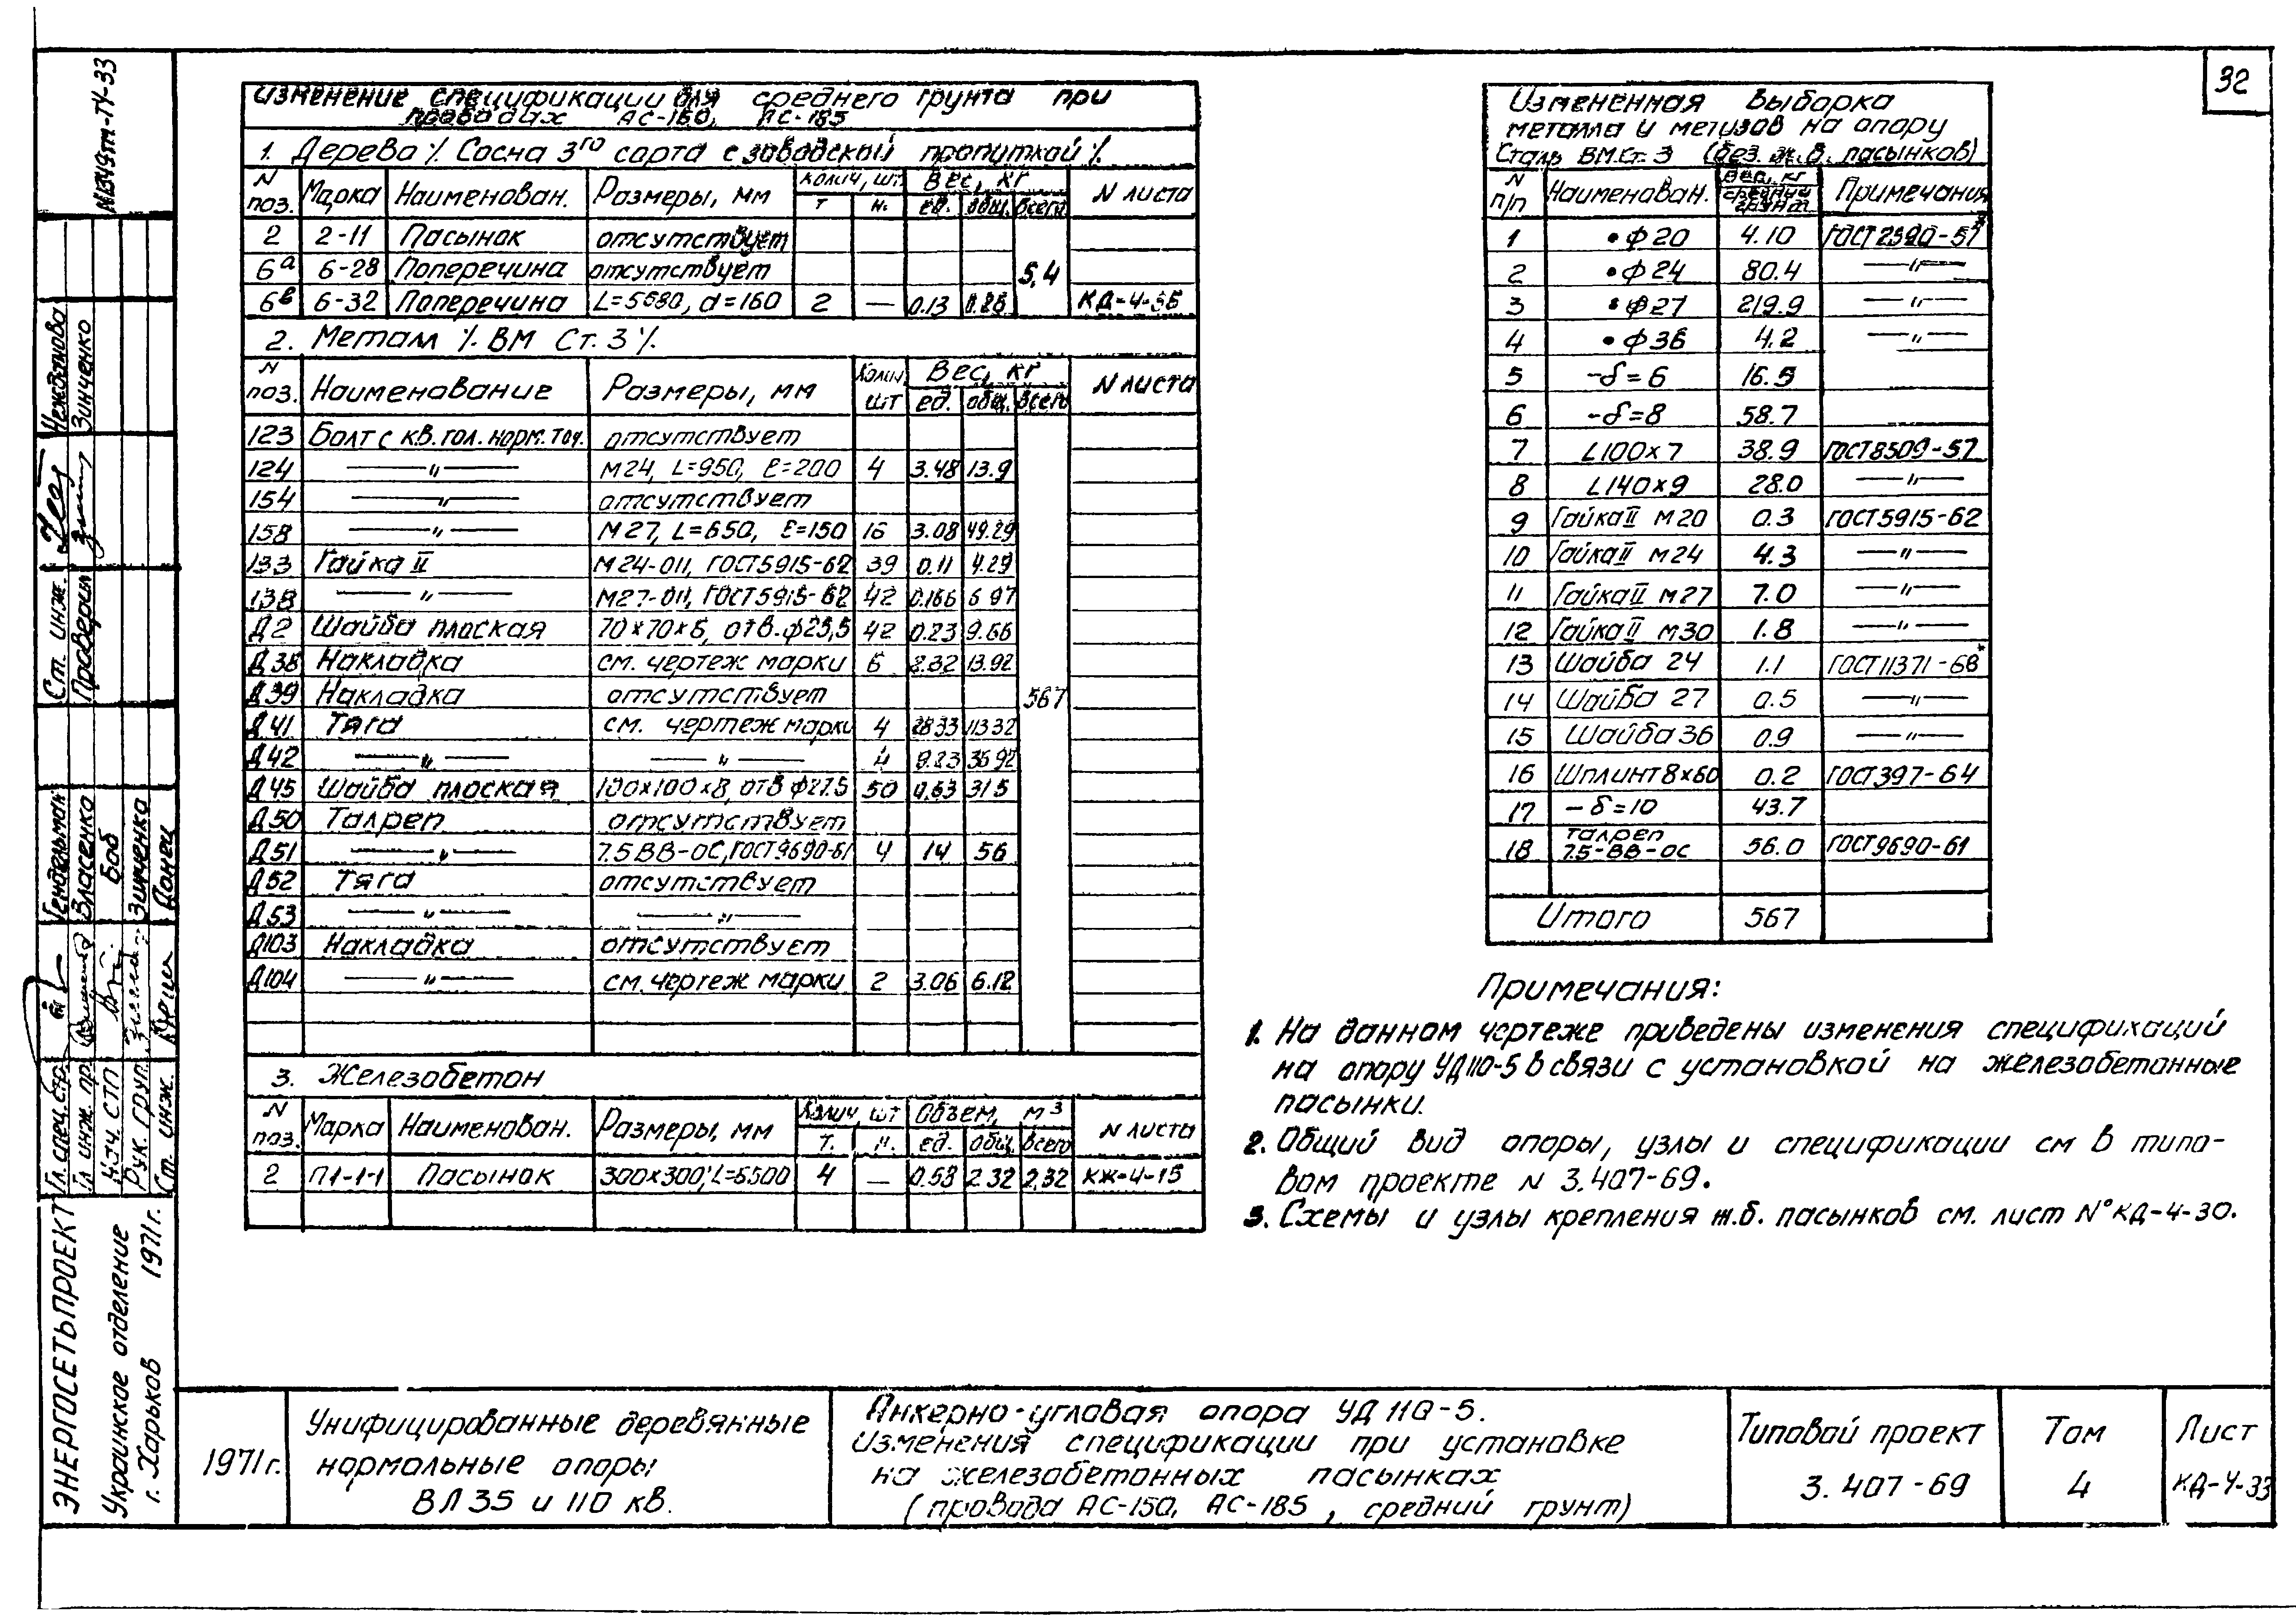 32
N1349тм-ТУ-33
Изменение спецификации для среднего грунта при
проводах АС-150, АС-185
1. Дерево ⁒ Сосна 3го сорта с заводской пропиткой ⁒
N поз. Марка Наименован. Размеры, мм Колич, шт. Вес, кг N листа
т н. ед. общ. всего
2 2-11 Пасынок отсутствует
6а 6-28 Поперечина отсутствует 5,4
6в 6-32 Поперечина L=5680, d=160 2 — 0.13 0.26 КД-4-36
2. Металл ⁒ ВМ Ст. 3 ⁒
N поз. Наименование Размеры, мм Колич. шт Вес, кг N листа
ед. общ. всего
123 Болт с кв. гол. норм. точ. отсутствует
124 —"— М24, L=950, ℓ=200 4 3.48 13.9
154 —"— отсутствует
158 —"— М27, L=650, ℓ=150 16 3.08 49.29
133 Гайка II М24-011, ГОСТ5915-62 39 0.11 4.29
138 —"— М27-011, ГОСТ5915-62 42 0.166 6.97
Д2 Шайба плоская 70×70×6, отв. ф25,5 42 0.23 9.66
Д38 Накладка см. чертеж марки 6 2.32 13.92
Д39 Накладка отсутствует 567
Д41 Тяга см. чертеж марки 4 28.33 113.32
Д42 —"— —"— 4 9.23 36.92
Д45 Шайба плоская 100×100×8, отв ф27.5 50 0,63 31.5
Д50 Талреп отсутствует
Д51 —"— 7.5ВВ-ОС, ГОСТ9690-61 4 14 56
Д52 Тяга отсутствует
Д53 —"— —"—
Д103 Накладка отсутствует
Д104 —"— см. чертеж марки 2 3.06 6.12
3. Железобетон
N поз. Марка Наименован. Размеры, мм Колич, шт Объем, м3 N листа
т. н. ед. общ. всего
2 П1-1-1 Пасынок 300×300; L=6500 4 — 0.58 2.32 2,32 КЖ-4-15
Измененная выборка
металла и метизов на опору
Сталь ВМ.Ст. 3 (без ж. б. пасынков)
N п/п Наименован. Вес, кг средний грунт Примечания
1 •ф20 4.10 ГОСТ2590-57*
2 •ф24 80.4 —"—
3 •ф27 219.9 —"—
4 •ф36 4.2 —"—
5 -δ=6 16.5
6 -δ=8 58.7
7 L100×7 38.9 ГОСТ8509-57
8 L140×9 28.0 —"—
9 Гайка II м20 0.3 ГОСТ5915-62
10 Гайка II м24 4.3 —"—
11 Гайка II м27 7.0 —"—
12 Гайка II м30 1.8 —"—
13 Шайба 24 1.1 ГОСТ11371-68*
14 Шайба 27 0.5 —"—
15 Шайба 36 0.9 —"—
16 Шплинт 8×60 0.2 ГОСТ397-64
17 -δ=10 43.7
18 Талреп 7.5-ВВ-ОС 56.0 ГОСТ9690-61
Итого 567
Примечания:
1. На данном чертеже приведены изменения спецификаций
на опору УД110-5 в связи с установкой на железобетонные
пасынки.
2. Общий вид опоры, узлы и спецификации см в типо-
вом проекте N 3.407-69.
3. Схемы и узлы крепления ж.б. пасынков см. лист N° КД-4-30.
Ст. инж. Нежданова
Проверил Зинченко
Гл. спец. стр. Гендельман
Гл инж. пр. Власенко
Нач. СТП Боб
Рук. груп. Зинченко
Ст. инж. Донец
ЭНЕРГОСЕТЬПРОЕКТ
Украинское отделение
г. Харьков 1971г.
1971г.
Унифицированные деревянные
нормальные опоры
ВЛ 35 и 110 кв.
Анкерно-угловая опора УД 110-5.
Изменения спецификации при установке
на железобетонных пасынках
(провода АС-150, АС-185, средний грунт)
Типовой проект
3.407-69
Том
4
Лист
КД-4-33